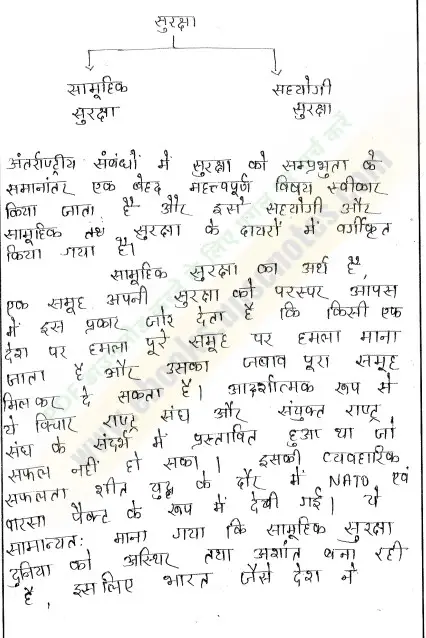 सुरक्षा
सामूहिक सहयोगी
सुरक्षा सुरक्षा
अंतर्राष्ट्रीय संबंधों में सुरक्षा को सम्प्रभुता के
समानांतर एक बेहद महत्त्वपूर्ण विषय स्वीकार
किया जाता है और इसे सहयोगी और
सामूहिक तथ सुरक्षा के दायरों में वर्गीकृत
किया गया है।
सामूहिक सुरक्षा का अर्थ है,
एक समूह अपनी सुरक्षा को परस्पर आपस
में इस प्रकार जोर देता है कि किसी एक
देश पर हमला पूरे समूह पर हमला माना
जाता है और उसका जबाव पूरा समूह
मिलकर दे सकता है। आदर्शात्मक रूप से
ये विचार राष्ट्र संघ और संयुक्त राष्ट्र
संघ के संदर्भ में प्रस्तावित हुआ था जो
सफल नहीं हो सका। इसकी व्यवहारिक
सफलता शीत युद्ध के दौर में NATO एवं
वारसा पैक्ट के रूप में देखी गई। ये
सामान्यतः माना गया कि सामूहिक सुरक्षा
दुनिया को अस्थिर तथा अशांत बना रही
है, इसलिए भारत जैसे देश ने